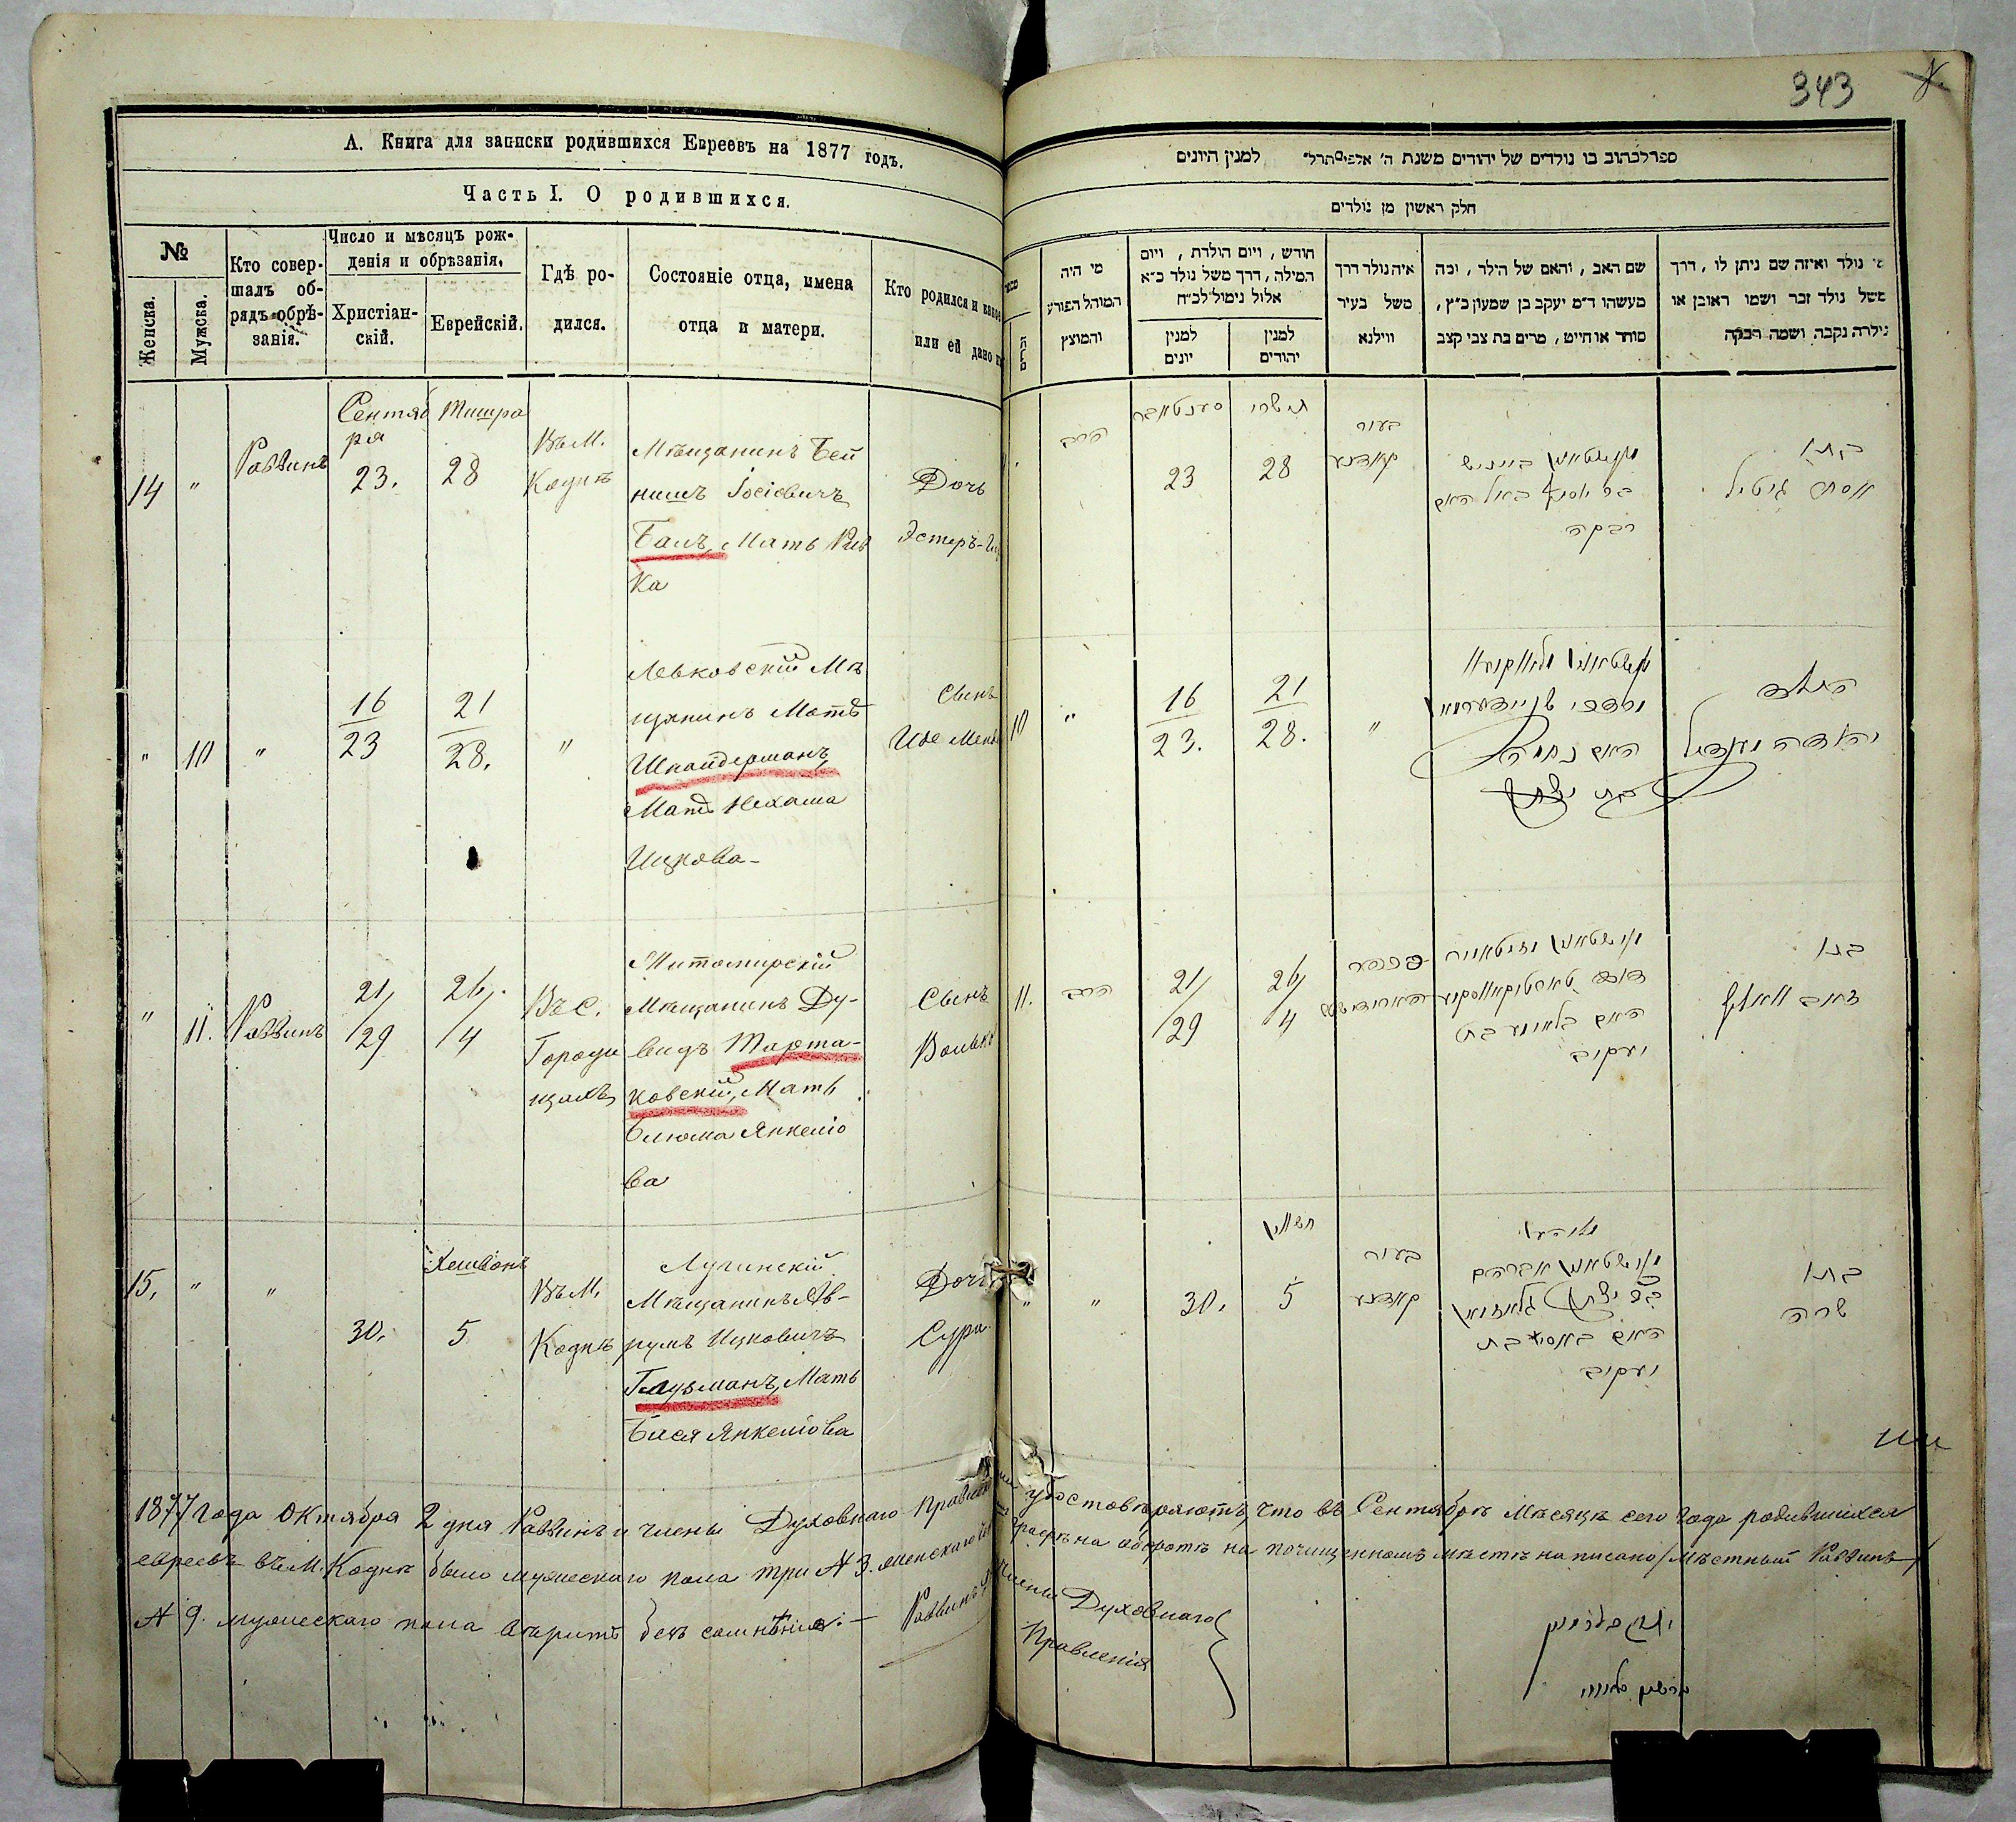 343
А. Книга для записки родившихся Евреевъ на 1877 годъ.
Часть I. О родившихся.
№
Женска.
Мужска.
Кто совер-
шалъ об-
рядъ обрѣ-
занія.
Число и мѣсяцъ рож-
денія и обрѣзанія.
Христіан-
скій.
Еврейскій.
Гдѣ ро-
дился.
Состояніе отца, имена
отца и матери.
Кто родился и
или ей дано
Сентяб
ря
Тишра
14 " Раввинъ 23. 28
Въ М.
Коднѣ
Мѣщанинъ Бей
нишъ Іосіовичъ
Банъ, Мать Рив
ка
Дочь
Эстеръ-
" 10 "
16
23
21
28.
"
Левковскій Мѣ
щанинъ
Шнайдерманъ,
Мать Нехама
Ицкова-
Сынъ
" 11. Раввинъ
21/
/29
26/.
/4
Въ С.
Городи
щахъ
Житомирскій
Мѣщанинъ Ду-
видъ Тарта-
ковскій, Мать
Блюма Янкеліо
ва
Сынъ
Волько
15, " "
Хешвонъ
30. 5
Въ М.
Коднѣ
Лугинскій
Мѣщанинъ Ав-
румъ Ицковичъ
Гаузманъ, Мать
Бася Янкеліова
Дочь
Сура
ספר לכתוב בו נולדים של יהודים משנת ה' אלפים תרל" למנין היונים
חלק ראשון מן נולדים
מי היה
המוהל הפורע
והמוצץ
חודש, ויום הולדת, ויום
המילה, דרך משל נולד כ"א
אלול נימול לכ"ח
למנין
יונים
למנין
יהודים
איה נולד דרך
משל בעיר
ווילנא
שם האב, והאם של הילד, ומה
מעשהו ד"מ יעקב בן שמעון כ"ץ,
סוחר או חייט, מרים בת צבי קצב
נולד ואיזה שם ניתן לו, דרך
משל נולד זכר ושמו ראובן או
נילדה נקבה ושמה רבקה
הרב
סענטאבר
תשרי
23 28
בעיר
קאדניע
רבקה
בתו
אסתר גיטיל
10 "
16
23.
21
28.
"
הילד
יהודה מענדיל
11. הרב
21/
/29
26/
/4
האם בלומע בת
יעקוב
בנו
זאב וואלף
חשון
" " 30. 5
בעיר
קאדניע
האם באסיע בת
יעקוב
בתו
שרה
1877 года Октября 2 дня Раввинъ и члены Духовнаго Правленія удостовѣряютъ, что въ Сентябрѣ Мѣсяцѣ сего года родившихся
евреевъ въ М. Коднѣ было мужескаго пола три № 3. женскаго на оборотѣ на почищенномъ мѣстѣ написано / Мѣстный Раввинъ /
№ 9. мужескаго пола вѣрить безъ сомнѣнія. — Раввинъ
Члены Духовнаго
Правленія